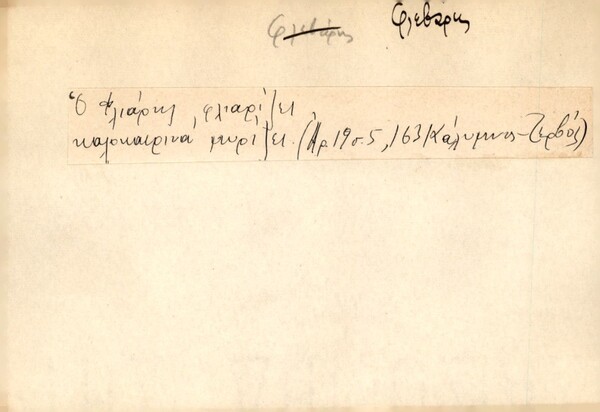 Φλεβάρης
Φλεβάρης
Ὁ Φλιάρης, φλιαρίζει
καλοκαιρινά μυρίζει. (Ἀρ. 19 σ. 5, 163 / Κάλυμνος - Ζερβός)